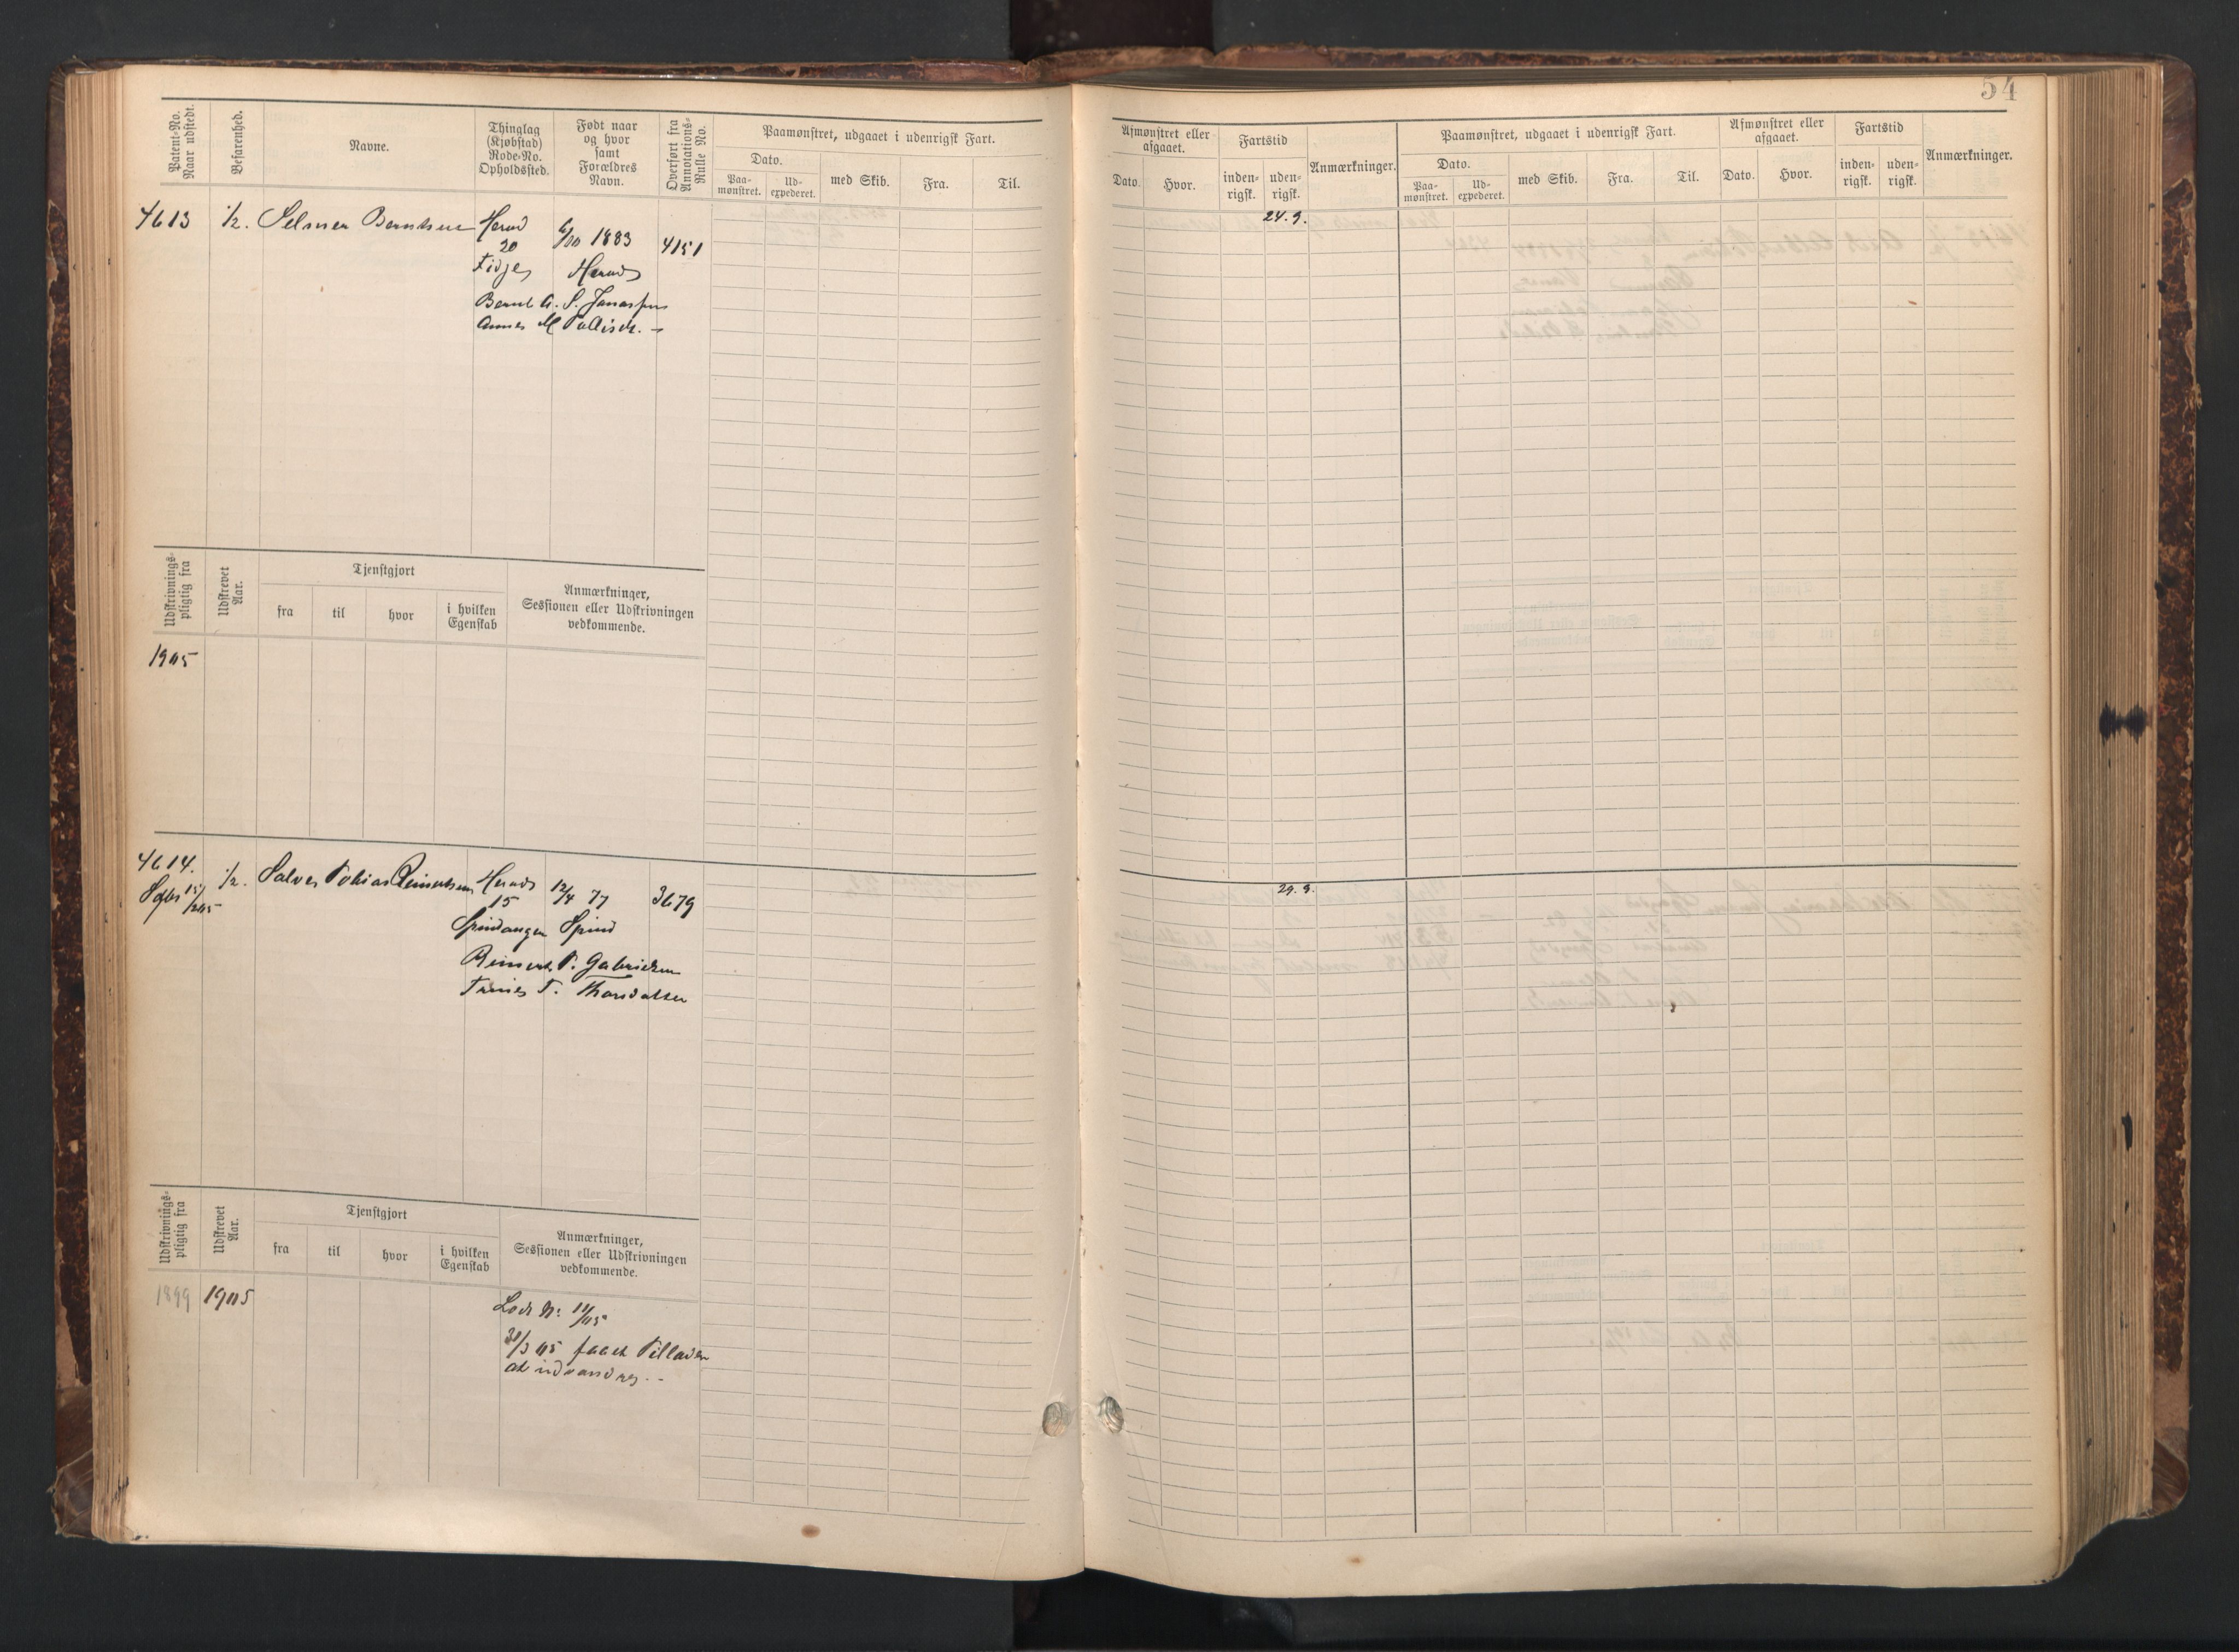 54
Patent-No. Naar udstedt.
Befarenhed.
Navne.
Thinglag (Kjøbstad) Rode-No. Opholdssted.
Født naar og hvor samt Forældres Navn.
Overført fra Annotations-Rulle No.
Paamønstret, udgaaet i udenrigsk Fart.
Dato.
Paa-mønstret.
Ud-expederet.
med Skib.
Fra.
Til.
Afmønstret eller afgaaet.
Dato.
Hvor.
Fartstid
inden-rigsk.
uden-rigsk.
Anmærkninger.
Paamønstret, udgaaet i udenrigsk Fart.
Dato.
Paa-mønstret.
Ud-expederet.
med Skib.
Fra.
Til.
Afmønstret eller afgaaet.
Dato.
Hvor.
Fartstid
inden-rigsk.
uden-rigsk.
Anmærkninger.
4613 1/2. Selmer Berntsen Herad 6/10 1883 4151 24.9.
20
Fidje Herad
Bernt A. S. Jonassen
Anne M
Udskrivnings-pligtig fra
Udskrevet Aar.
Tjenstgjort
fra
til
hvor
i hvilken Egenskab
Anmærkninger, Sessionen eller Udskrivningen vedkommende.
1905
4614. 1/2. Salve Tobias Reinertsen Herad 12/4 77 3679 29.9.
15
Spindangen Spind
Reinert T. Gabrielsen
Trine T.
Udskrivnings-pligtig fra
Udskrevet Aar.
Tjenstgjort
fra
til
hvor
i hvilken Egenskab
Anmærkninger, Sessionen eller Udskrivningen vedkommende.
1899 1905 Lods No 11/05
30/3 05 faaet Tilladen
at udvandre. -